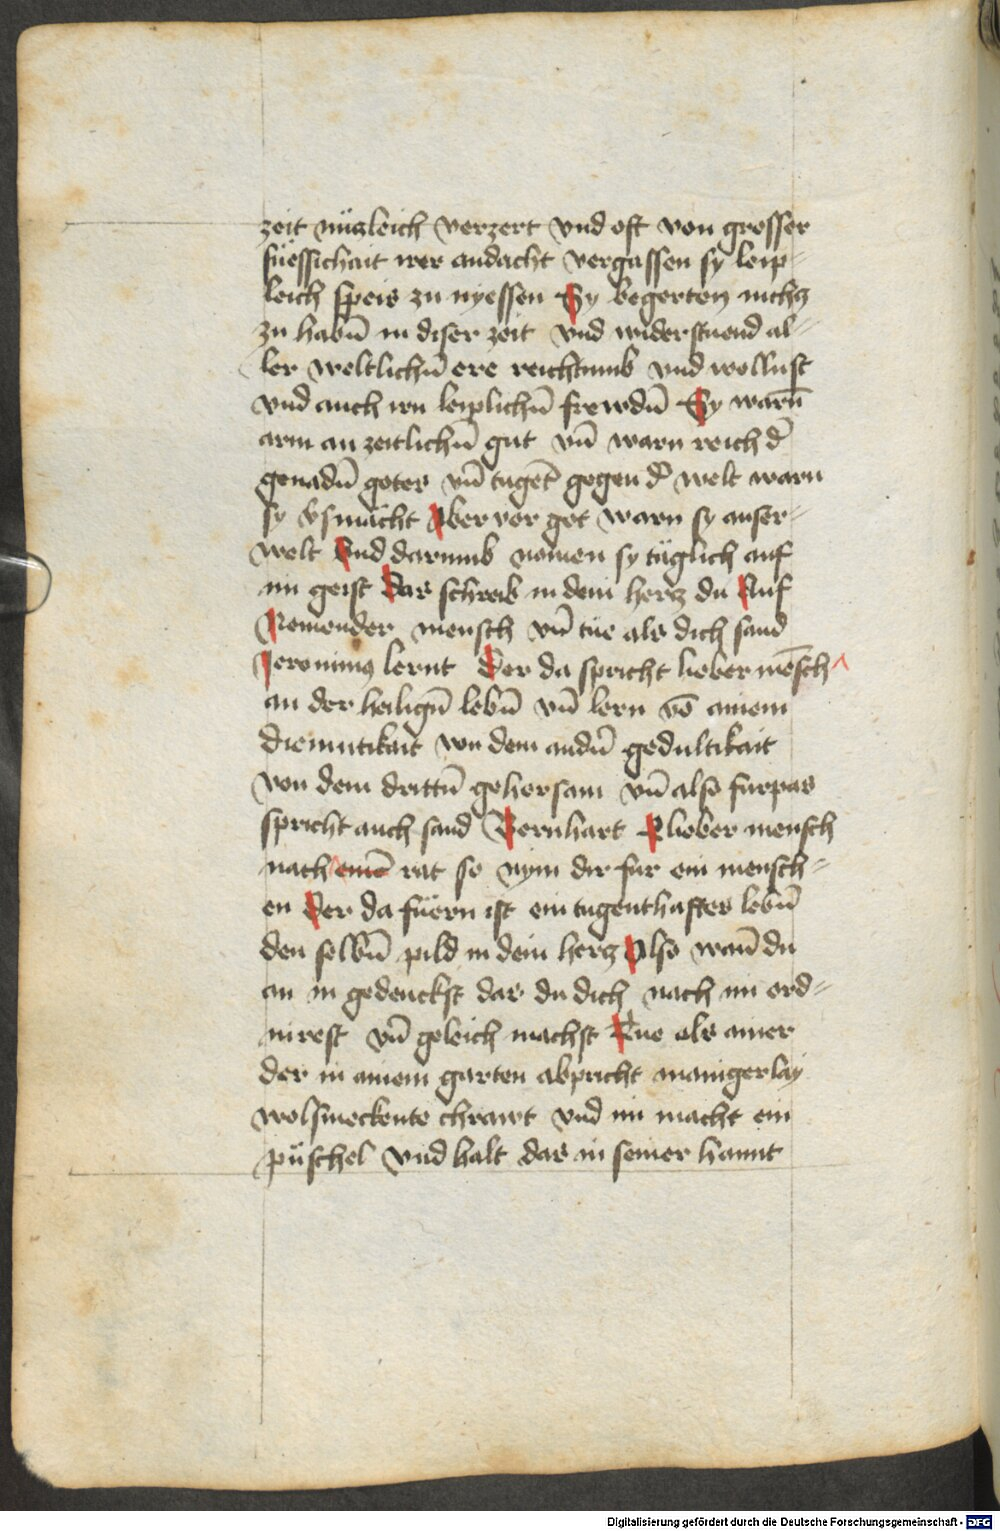 zeit nüczleich verzert vnd oft von grosser
süessichait irer andacht vergassen sy leip-
leich speis zu nyessen Sy begerten nichcz
zu habn̄ in diser zeit vnd widerstuend al-
ler weltlichn̄ ere reichtumb vnd wollust
vnd auch irn leiplichn̄ frewdn̄ Sy warn̄
arm an zeitlichn̄ gut vn̄ warn reich d̄
genadn̄ gotes vn̄ tugēt gegen d̄ welt warn
sy v̄smächt Aber vor got warn sy auser-
welt Vnd darumb nomen sy täglich auf
im geist Das schreib in dein hercz du Auf
Nemender mensch vn̄ tue als dich sand
Jeronimus lernt Der da spricht lieber mēsch
an der heilign̄ lebn̄ vn̄ lern vō ainem
diemutikait von dem andn̄ gedultikait
von dem drittn̄ gehorsam vn̄ also furpas
spricht auch sand Bernhart A lieber mensch
nach einē rat so nym dir fur ein mensch-
en Der da füern ist ein tugenthaftes lebn̄
den selbn̄ pild in dein hercz Also wan̄ du
an in gedenckst das du dich nach im ord-
nirest vn̄ geleich machst Tue als ainer
der in ainem garten abpricht manigerlay
wolsmeckente chrawt vnd im macht ein
püschel vnd halt das in seiner hannt
Digitalisierung gefördert durch die Deutsche Forschungsgemeinschaft - DFG